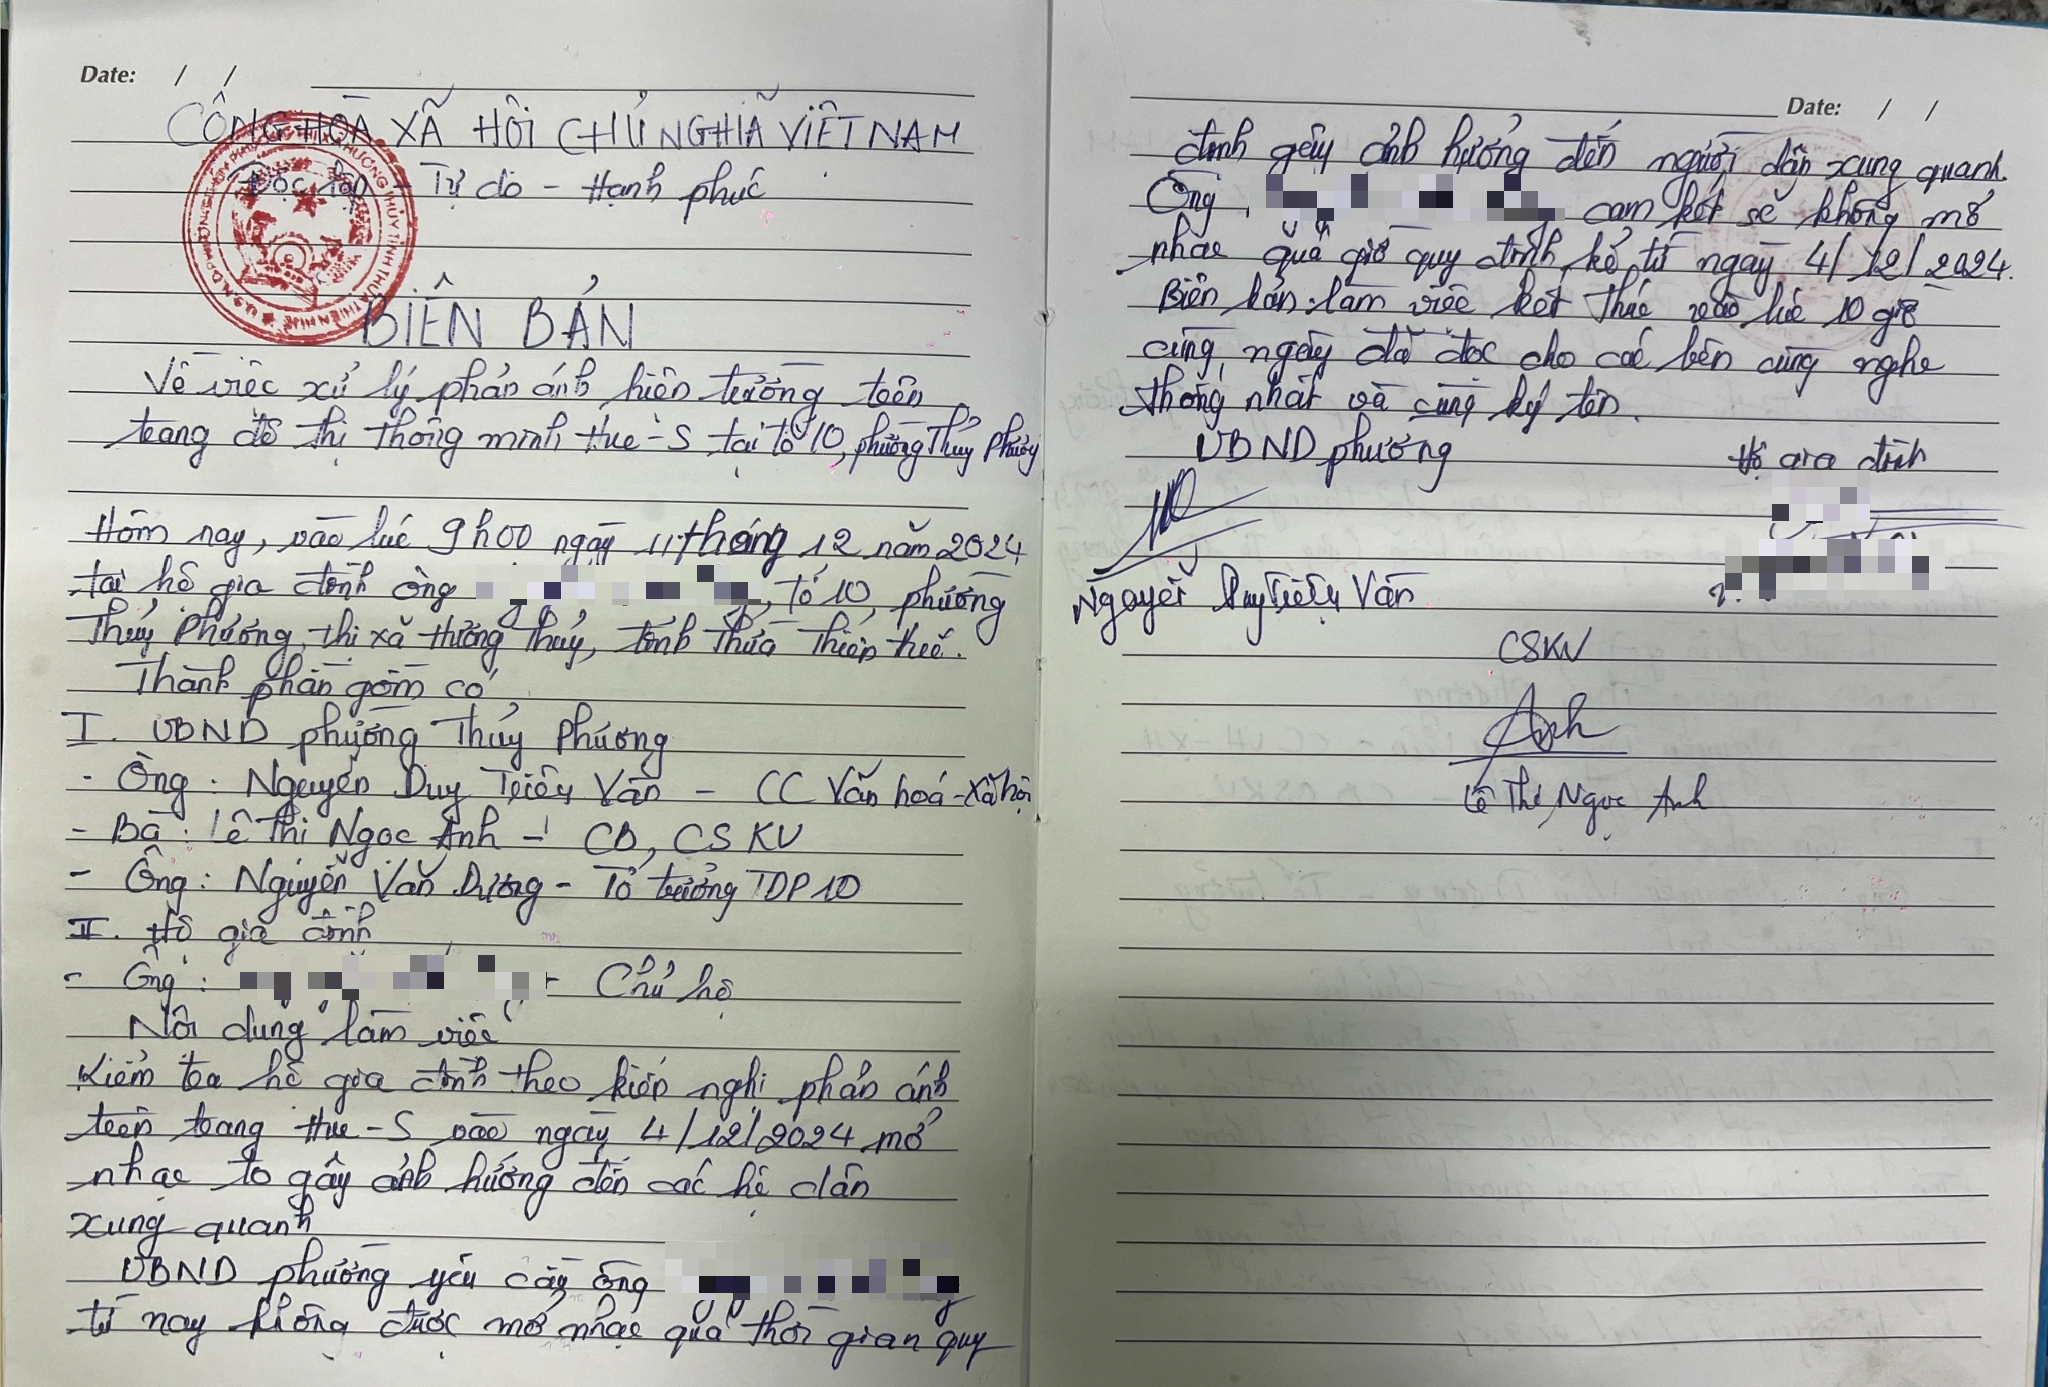 Date: / /
CỘNG HOÀ XÃ HỘI CHỦ NGHĨA VIỆT NAM
Độc lập - Tự do - Hạnh phúc
BIÊN BẢN
Về việc xử lý phản ánh hiện trường trên
trang đô thị thông minh Hue-S tại tổ 10, phường Thủy Phương
Hôm nay, vào lúc 9h00 ngày 11 tháng 12 năm 2024
tại hộ gia đình ông , tổ 10, phường
Thủy Phương, thị xã Hương Thủy, tỉnh Thừa Thiên Huế.
Thành phần gồm có
I. UBND phường Thủy Phương
- Ông: Nguyễn Duy Triều Vân - CC Văn hoá - Xã hội
- Bà: Lê Thị Ngọc Anh - CB, CSKV
- Ông: Nguyễn Văn Dương - Tổ trưởng TDP 10
II. Hộ gia đình
- Ông: - Chủ hộ
Nội dung làm việc
Kiểm tra hộ gia đình theo kiến nghị phản ánh
trên trang Hue-S vào ngày 4/12/2024 mở
nhạc to gây ảnh hưởng đến các hộ dân
xung quanh
UBND phường yêu cầu ông
từ nay không được mở nhạc quá thời gian quy
Date: / /
định gây ảnh hưởng đến người dân xung quanh.
Ông cam kết sẽ không mở
nhạc quá giờ quy định kể từ ngày 4/12/2024.
Biên bản làm việc kết thúc vào lúc 10 giờ
cùng ngày đã đọc cho các bên cùng nghe
thống nhất và cùng ký tên.
UBND phường Hộ gia đình
Nguyễn Duy Triều Vân
CSKV
Anh
Lê Thị Ngọc Anh